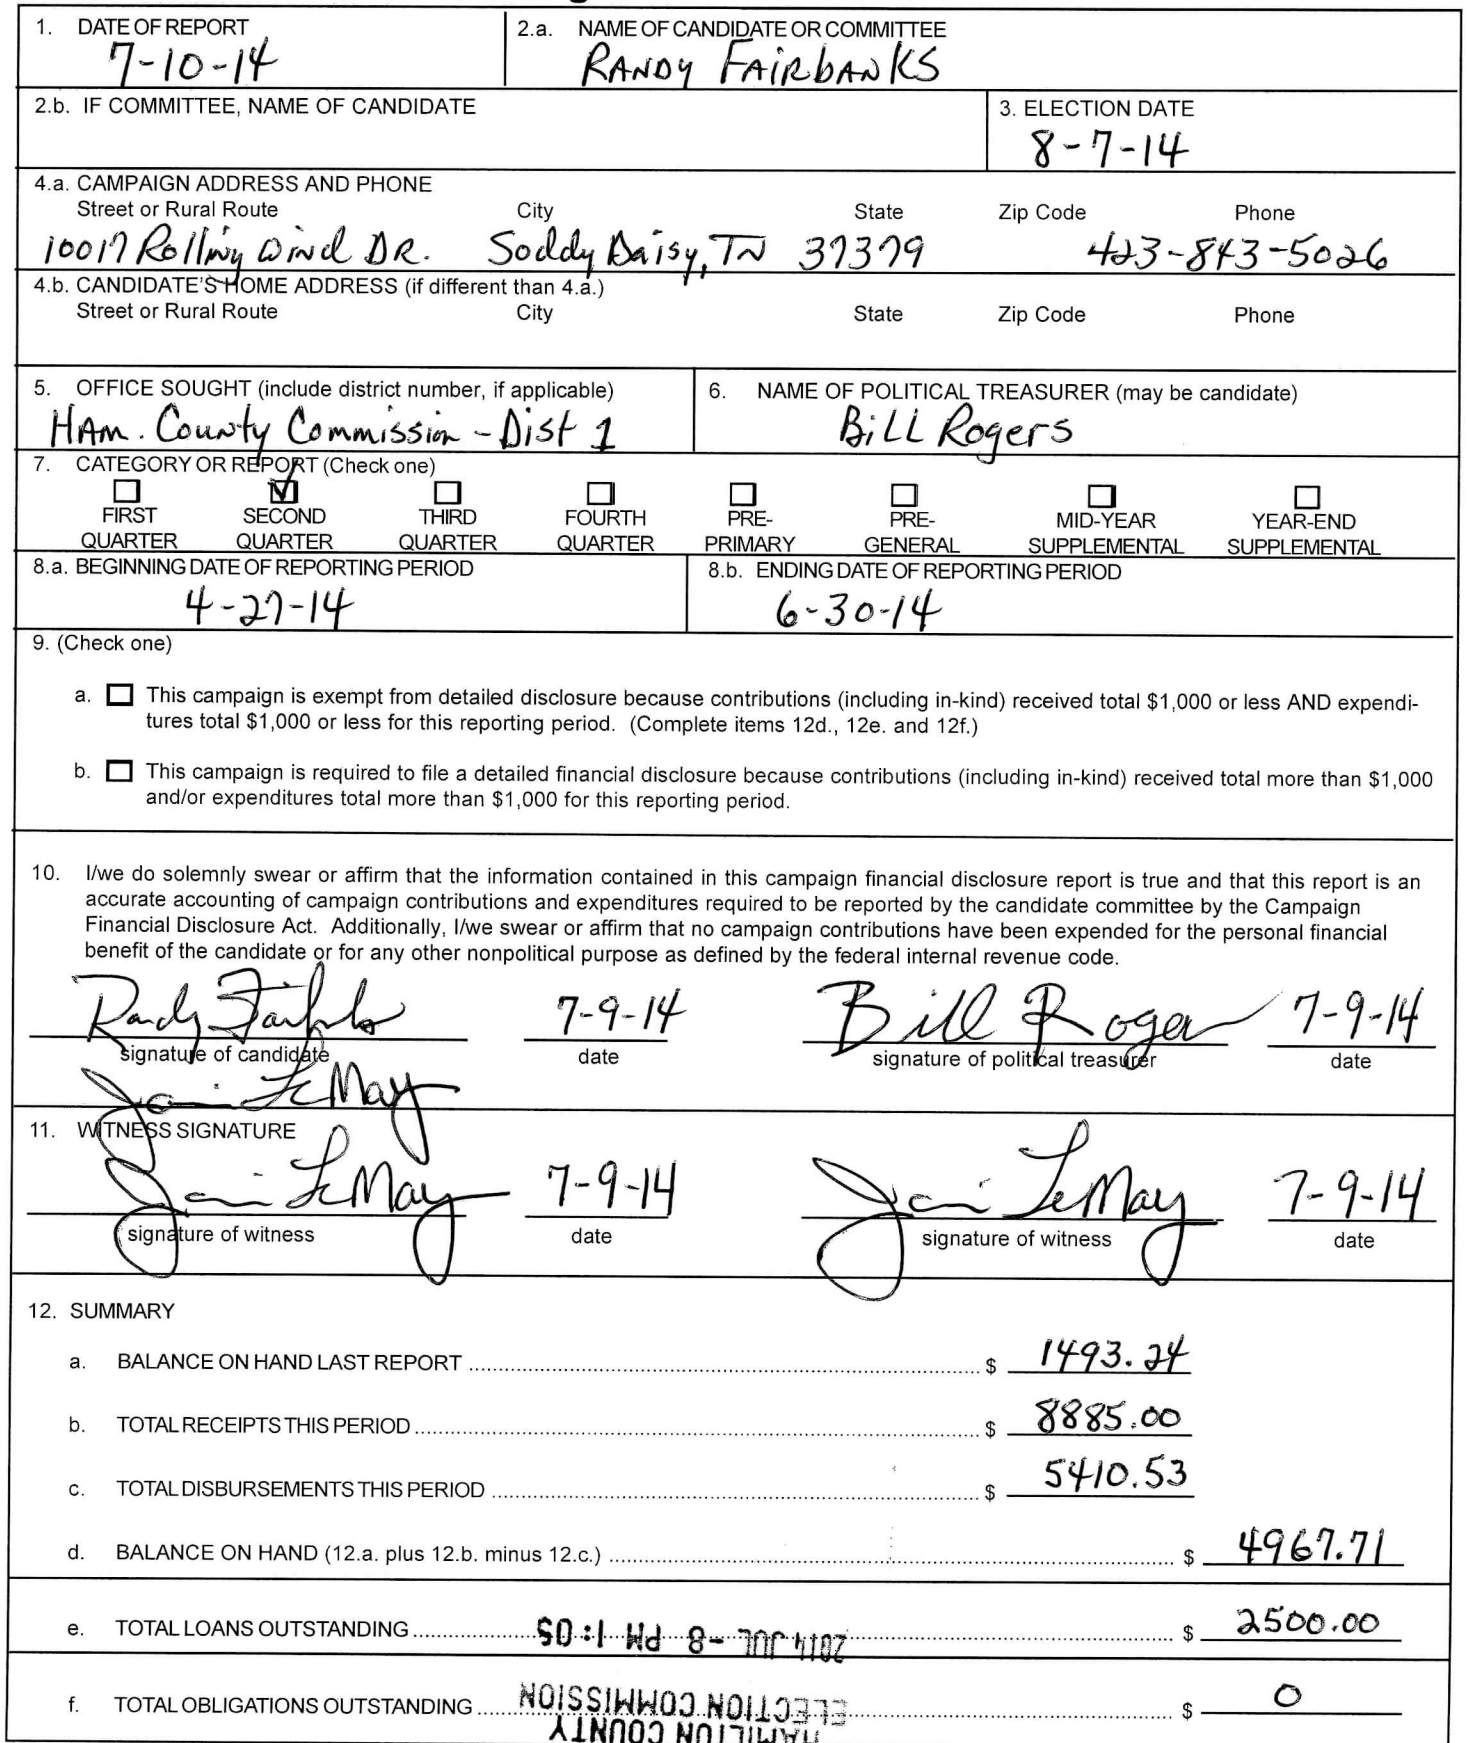 1. DATE OF REPORT
7-10-14
2.a. NAME OF CANDIDATE OR COMMITTEE
RANDY FAIRBANKS
2.b. IF COMMITTEE, NAME OF CANDIDATE
3. ELECTION DATE
8-7-14
4.a. CAMPAIGN ADDRESS AND PHONE
Street or Rural Route City State Zip Code Phone
10017 Rolling Wind DR. Soddy Daisy, TN 37379 423-843-5026
4.b. CANDIDATE'S HOME ADDRESS (if different than 4.a.)
Street or Rural Route City State Zip Code Phone
5. OFFICE SOUGHT (include district number, if applicable)
HAm. County Commission - Dist 1
6. NAME OF POLITICAL TREASURER (may be candidate)
Bill Rogers
7. CATEGORY OR REPORT (Check one)
FIRST SECOND THIRD FOURTH PRE- PRE- MID-YEAR YEAR-END
QUARTER QUARTER QUARTER QUARTER PRIMARY GENERAL SUPPLEMENTAL SUPPLEMENTAL
8.a. BEGINNING DATE OF REPORTING PERIOD
4-27-14
8.b. ENDING DATE OF REPORTING PERIOD
6-30-14
9. (Check one)
a. This campaign is exempt from detailed disclosure because contributions (including in-kind) received total $1,000 or less AND expendi-
tures total $1,000 or less for this reporting period. (Complete items 12d., 12e. and 12f.)
b. This campaign is required to file a detailed financial disclosure because contributions (including in-kind) received total more than $1,000
and/or expenditures total more than $1,000 for this reporting period.
10. I/we do solemnly swear or affirm that the information contained in this campaign financial disclosure report is true and that this report is an
accurate accounting of campaign contributions and expenditures required to be reported by the candidate committee by the Campaign
Financial Disclosure Act. Additionally, I/we swear or affirm that no campaign contributions have been expended for the personal financial
benefit of the candidate or for any other nonpolitical purpose as defined by the federal internal revenue code.
Randy Fairbanks 7-9-14 Bill Rogers 7-9-14
signature of candidate date signature of political treasurer date
LeMay
11. WITNESS SIGNATURE
LeMay 7-9-14 LeMay 7-9-14
signature of witness date signature of witness date
12. SUMMARY
a. BALANCE ON HAND LAST REPORT $ 1493.24
b. TOTAL RECEIPTS THIS PERIOD $ 8885.00
c. TOTAL DISBURSEMENTS THIS PERIOD $ 5410.53
d. BALANCE ON HAND (12.a. plus 12.b. minus 12.c.) $ 4967.71
e. TOTAL LOANS OUTSTANDING $ 2500.00
2014 JUL -8 PM 1:05
f. TOTAL OBLIGATIONS OUTSTANDING $ 0
ELECTION COMMISSION
HAMILTON COUNTY